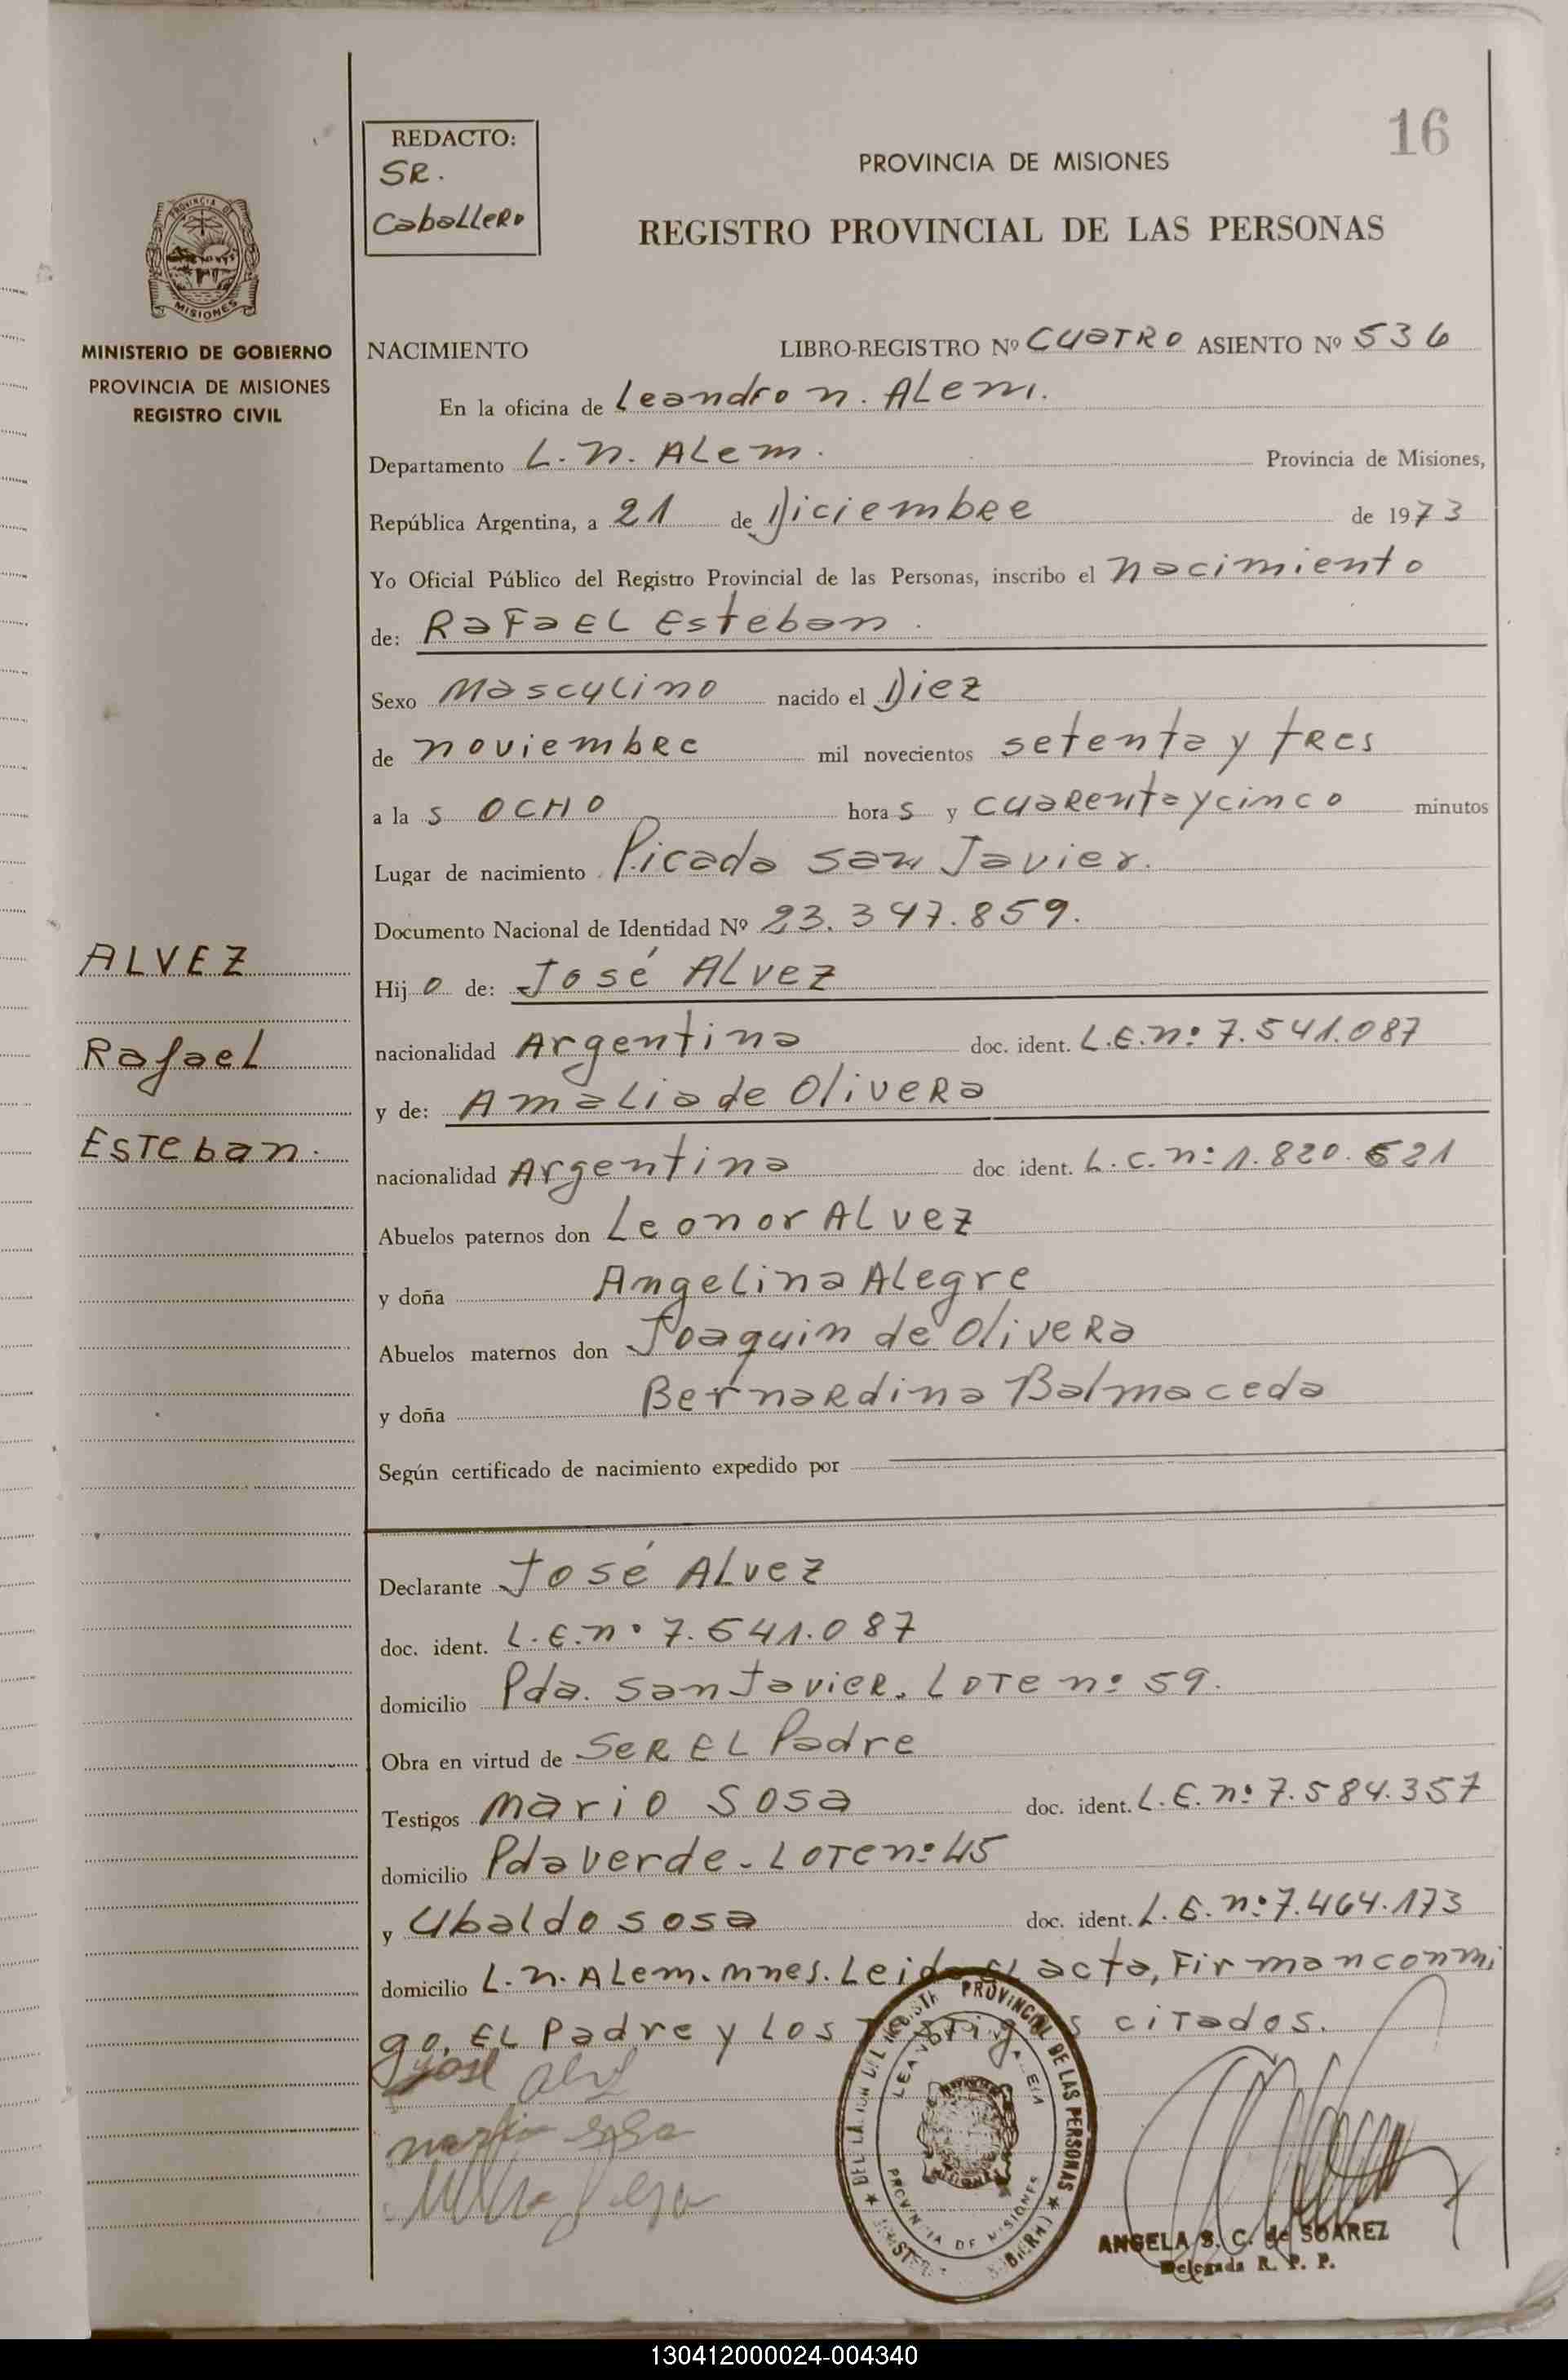 16
REDACTO:
SR.
Caballero
PROVINCIA DE MISIONES
REGISTRO PROVINCIAL DE LAS PERSONAS
PROVINCIA DE
MISIONES
MINISTERIO DE GOBIERNO
PROVINCIA DE MISIONES
REGISTRO CIVIL
NACIMIENTO LIBRO-REGISTRO Nº CUATRO ASIENTO Nº 536
En la oficina de Leandro n. ALem.
Departamento L. n. ALem. Provincia de Misiones,
República Argentina, a 21 de Diciembre de 1973
Yo Oficial Público del Registro Provincial de las Personas, inscribo el nacimiento
de: RaFaEL Esteban.
Sexo Masculino nacido el Diez
de noviembre mil novecientos setenta y tres
a la s OCHO hora s y cuarentaycinco minutos
Lugar de nacimiento Picada san Javier.
Documento Nacional de Identidad Nº 23.347.859.
Hij o de: José ALvez
nacionalidad Argentina doc. ident. L.E.nº 7.541.087
y de: Amalia de Olivera
nacionalidad Argentina doc. ident. L.C.nº 1.820.621
Abuelos paternos don Leonor ALvez
y doña Angelina ALegre
Abuelos maternos don Joaquin de Olivera
y doña Bernardina Balmaceda
Según certificado de nacimiento expedido por
ALVEZ
Rafael
ESTeban.
Declarante José ALvez
doc. ident. L.E.nº 7.541.087
domicilio Pda. San Javier. LOTE nº 59.
Obra en virtud de SER EL Padre
Testigos Mario Sosa doc. ident. L.E.nº 7.584.357
domicilio Pda verde - LOTE nº 45
y Ubaldo sosa doc. ident. L.E.nº 7.464.173
domicilio L.n.ALem.Mnes. Leida el acta, Firman conmi
go, EL Padre y Los Testigos citados.
jose
mario sosa
PROVINCIAL DE LAS PERSONAS
PROVINCIA DE MISIONES
ANGELA S. C. de SOAREZ
Delegada R. P. P.
130412000024-004340